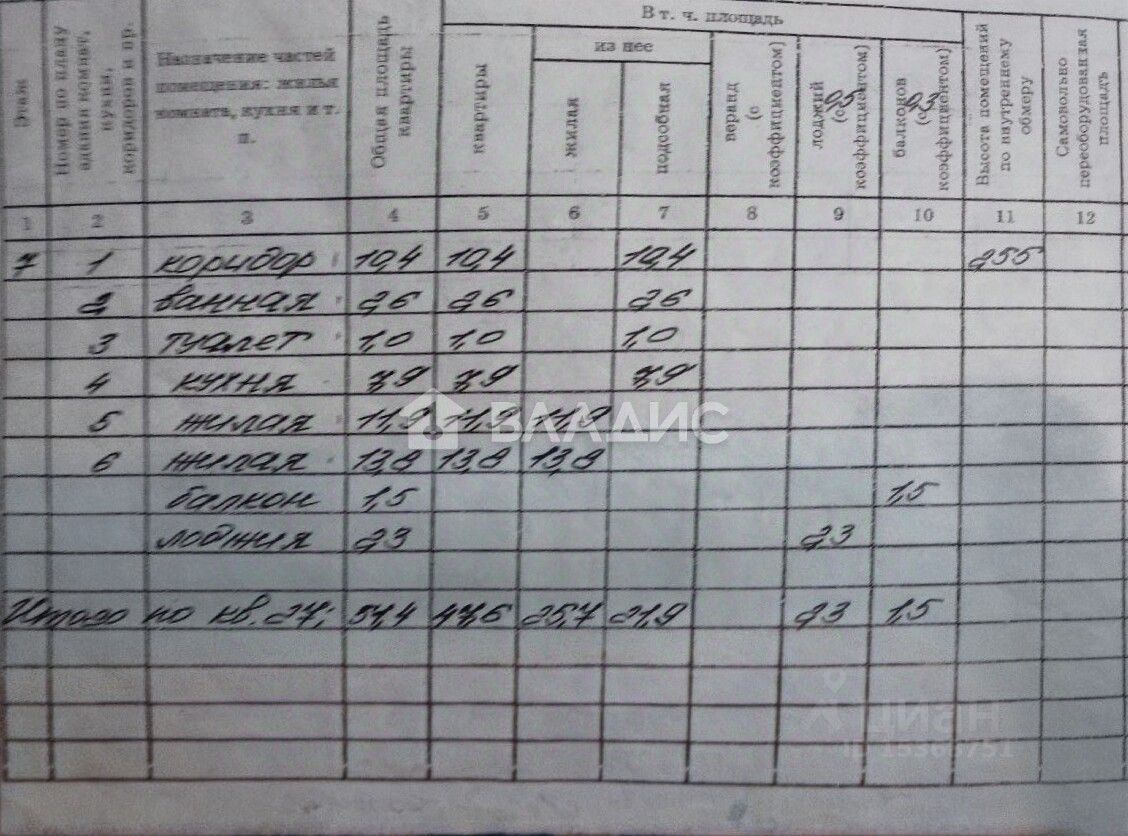 Этаж
Номер по плану здания комнат, кухни, коридоров и пр.
Назначение частей помещения: жилых комнат, кухня и т. п.
Общая площадь квартиры
В т. ч. площадь
квартиры
из нее
жилая
подсобная
веранд (с коэффициентом)
лоджий (с 0,5 коэффициентом)
балконов (с 0,3 коэффициентом)
Высота помещений по внутреннему обмеру
Самовольно переоборудованная площадь
1 2 3 4 5 6 7 8 9 10 11 12
7 1 коридор 10,4 10,4 10,4 2,55
2 ванная 2,6 2,6 2,6
3 туалет 1,0 1,0 1,0
4 кухня 7,9 7,9 7,9
5 жилая 11,9 11,9 11,9
6 жилая 13,8 13,8 13,8
балкон 1,5 1,5
лоджия 2,3 2,3
Итого по кв. 27: 51,4 47,6 25,7 21,9 2,3 1,5
ВЛАДИС
ЦИАН